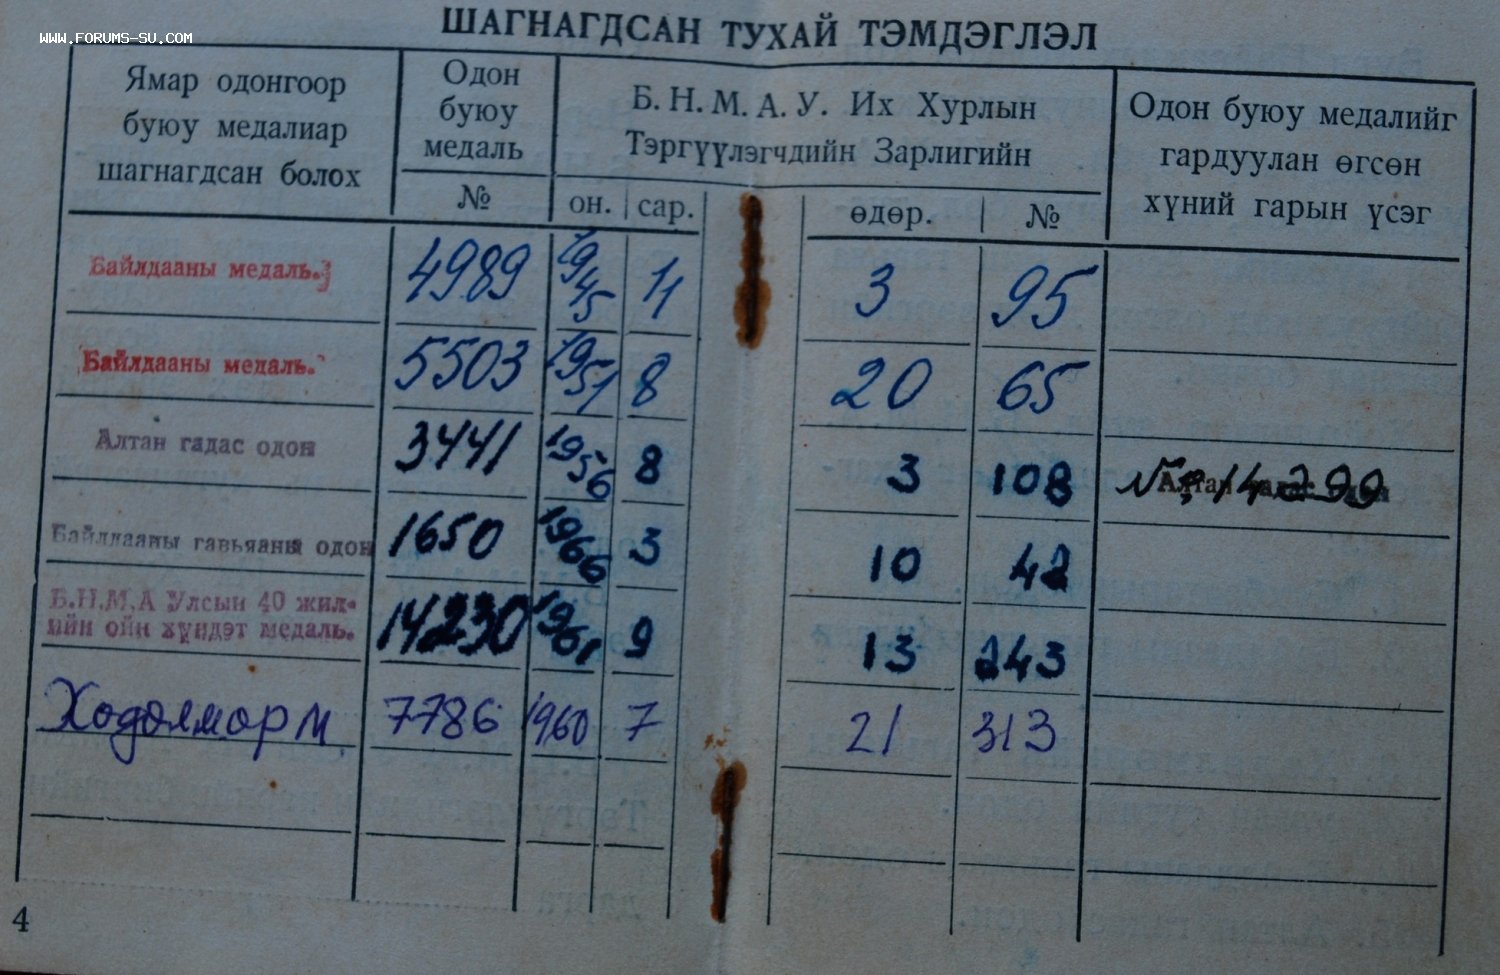 WWW.FORUMS-SU.COM
ШАГНАГДСАН ТУХАЙ ТЭМДЭГЛЭЛ
Ямар одонгоор
буюу медалиар
шагнагдсан болох
Одон
буюу
медаль
№
Б. Н. М. А. У. Их Хурлын
Тэргүүлэгчдийн Зарлигийн
он. сар. өдөр. №
Одон буюу медалийг
гардуулан өгсөн
хүний гарын үсэг
Байлдааны медаль. 4989 1945 11 3 95
Байлдааны медаль. 5503 1951 8 20 65
Алтан гадас одон 3441 1956 8 3 108 № 14299
Байлдааны гавьяаны одон 1650 1966 3 10 42
Б.Н.М.А Улсын 40 жил-
ийн ойн хүндэт медаль. 14230 1961 9 13 243
Ходолморм 7786 1960 7 21 313
4